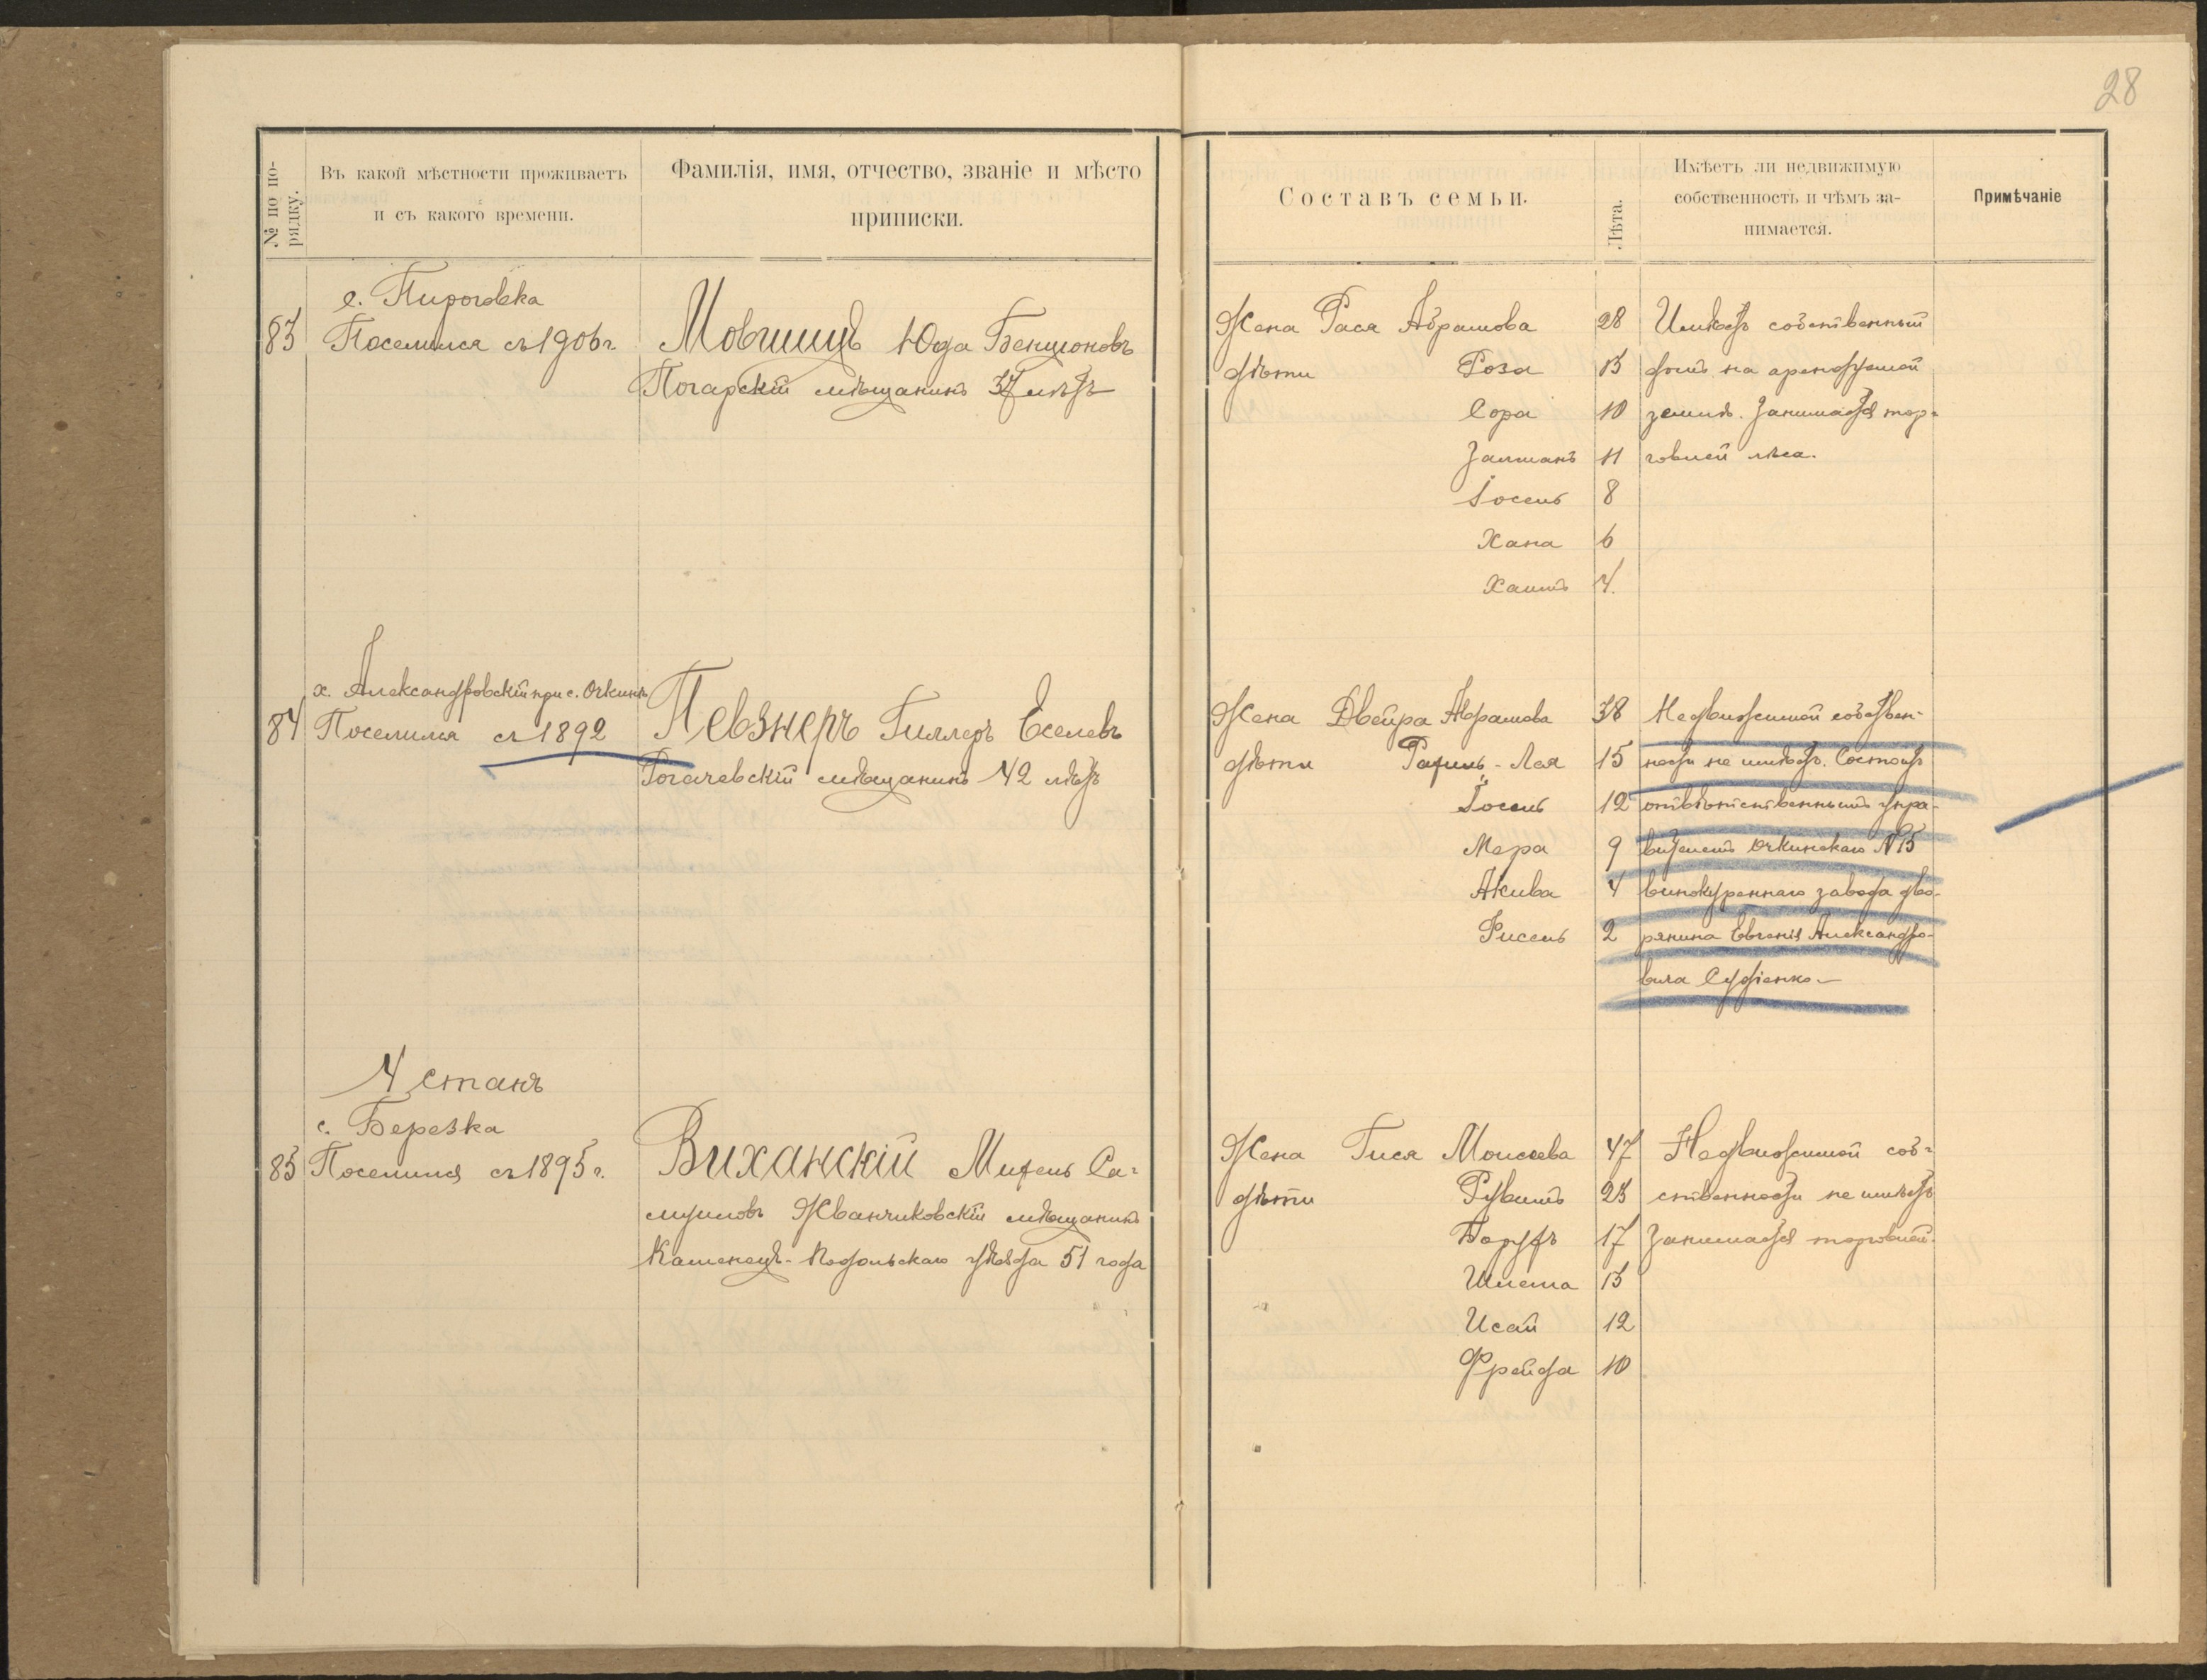 28
№ по по-
рядку.
Въ какой мѣстности проживаетъ
и съ какого времени.
Фамилія, имя, отчество, званіе и мѣсто
приписки.
Составъ семьи.
Лѣта.
Имѣетъ ли недвижимую
собственность и чѣмъ за-
нимается.
Примѣчаніе
с. Пироговка
83 Поселился съ 1906 г.
Мовшицъ Юда Бенціоновъ
Погарскій мѣщанинъ 37 лѣтъ
Жена Рася Абрамова 28 Имѣетъ собственный
дѣти Роза 13 домъ на арендуемой
Сора 10 землѣ. Занимается тор-
Залманъ 11 говлей лѣса.
Іосель 8
Хана 6
Хаимъ 4.
х. Александровскій при с. Очкинѣ
84 Поселился съ 1892
Певзнеръ Гиллеръ Еселевъ
Рогачевскій мѣщанинъ 42 лѣтъ
Жена Двейра Абрамова 38 Недвижимой собствен-
дѣти Рахиль-Лея 15 ности не имѣетъ. Состоитъ
Іосель 12 отвѣтственнымъ упра-
Мера 9 вителемъ Очкинскаго №15
Акива 4 винокуреннаго завода дво-
Фисель 2 рянина Евгенія Александро-
вича Судіенко.-
4 станъ
с. Березка
85 Поселился съ 1895 г.
Виханскій Михель Са-
муиловъ Жванчиковскій мѣщанинъ
Каменецъ-Подольскаго уѣзда 51 года
Жена Гися Моисеева 47 Недвижимой соб-
дѣти Рувимъ 23 ственности не имѣетъ
Борухъ 17 Занимается торговлей.
Шлема 13
Исай 12
Фрейда 10